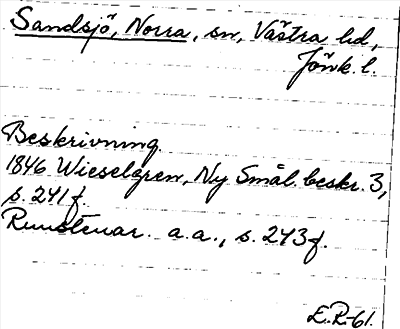 Sandsjö, Norra, sn, Västra hd,
Jönk. l.
Beskrivning.
1846 Wieselgren, Ny Smål. beskr. 3,
s. 241 f.
Runstenar. a.a., s. 243 f.
E.R-61.